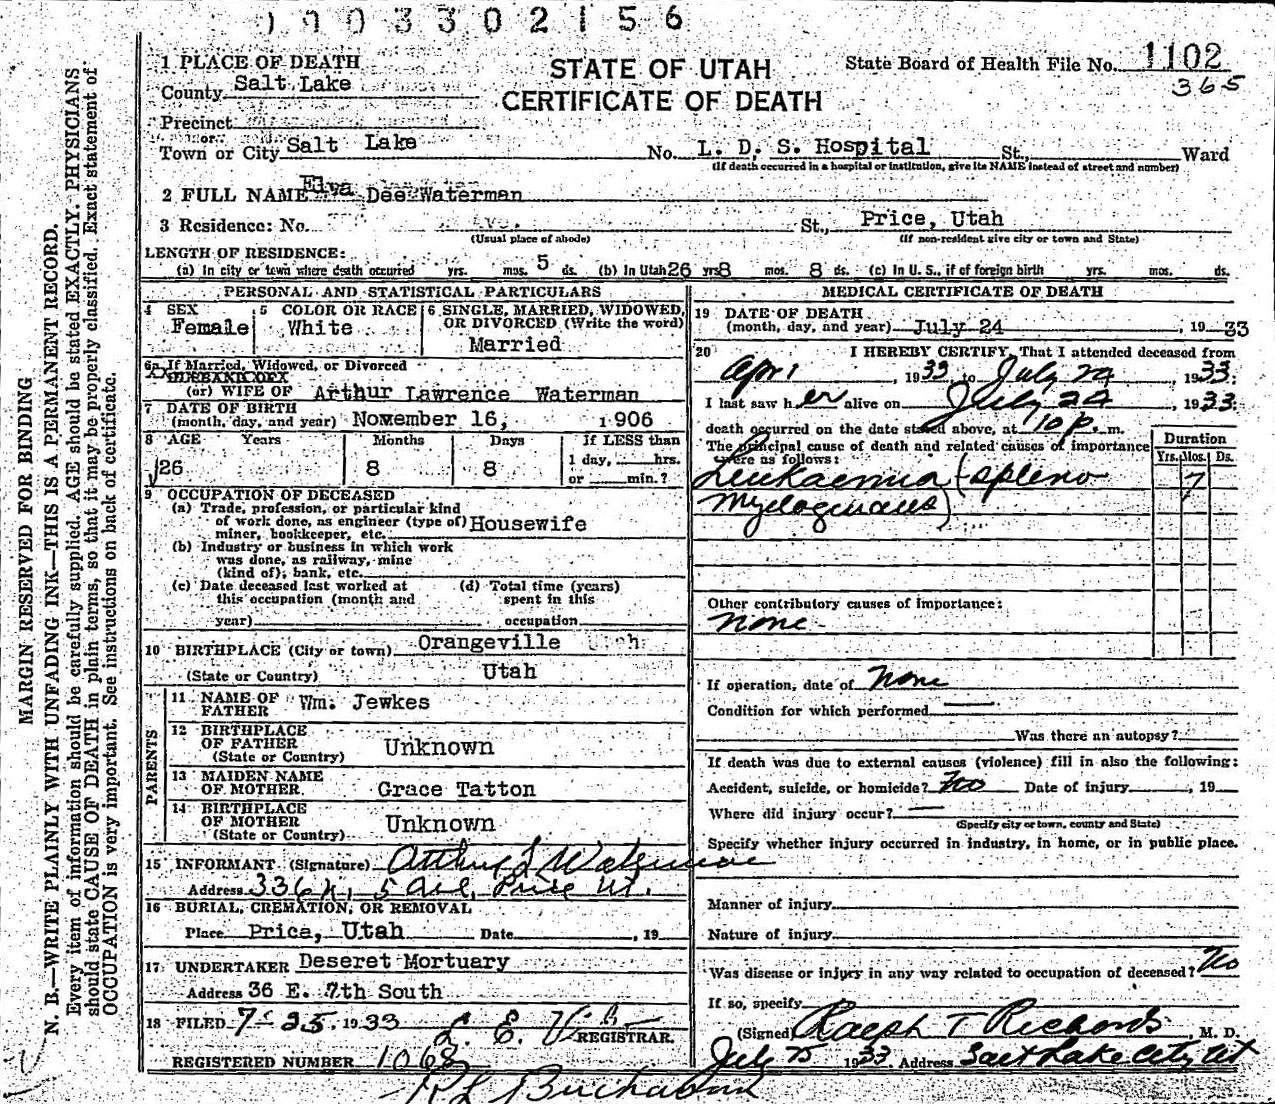 1003302156
STATE OF UTAH
CERTIFICATE OF DEATH
State Board of Health File No. 1102
365
1 PLACE OF DEATH
County Salt Lake
Precinct
or
Town or City Salt Lake No. L. D. S. Hospital St., Ward
(If death occurred in a hospital or institution, give its NAME instead of street and number)
2 FULL NAME Elva Dee Waterman
3 Residence: No. St., Price, Utah
(Usual place of abode) (If non-resident give city or town and State)
LENGTH OF RESIDENCE:
(a) In city or town where death occurred yrs. mos. 5 ds. (b) In Utah 26 yrs 8 mos. 8 ds. (c) In U. S., if of foreign birth yrs. mos. ds.
PERSONAL AND STATISTICAL PARTICULARS
4 SEX Female
5 COLOR OR RACE White
6 SINGLE, MARRIED, WIDOWED, OR DIVORCED (Write the word)
Married
6a If Married, Widowed, or Divorced
(or) WIFE OF Arthur Lawrence Waterman
7 DATE OF BIRTH
(month, day, and year) November 16, 1906
8 AGE Years Months Days If LESS than
26 8 8 1 day, hrs.
or min.?
9 OCCUPATION OF DECEASED
(a) Trade, profession, or particular kind
of work done, as engineer (type of) Housewife
miner, bookkeeper, etc.
(b) Industry or business in which work
was done, as railway, mine
(kind of); bank, etc.
(c) Date deceased last worked at (d) Total time (years)
this occupation (month and spent in this
year) occupation
10 BIRTHPLACE (City or town) Orangeville
(State or Country) Utah
PARENTS
11 NAME OF FATHER Wm. Jewkes
12 BIRTHPLACE
OF FATHER Unknown
(State or Country)
13 MAIDEN NAME
OF MOTHER Grace Tatton
14 BIRTHPLACE
OF MOTHER Unknown
(State or Country)
15 INFORMANT (Signature) Arthur L Waterman
Address 336 N. 5 Ave, Price Ut.
16 BURIAL, CREMATION, OR REMOVAL
Place Price, Utah Date , 19
17 UNDERTAKER Deseret Mortuary
Address 36 E. 7th South
18 FILED 7-25, 1933 REGISTRAR.
REGISTERED NUMBER 1068
MEDICAL CERTIFICATE OF DEATH
19 DATE OF DEATH
(month, day, and year) July 24, 1933
20 I HEREBY CERTIFY, That I attended deceased from
Apr 1, 1933 to July 24, 1933.
I last saw her alive on July 24, 1933.
death occurred on the date stated above, at 110 p. m.
The principal cause of death and related causes of importance
were as follows:
Duration
Yrs. Mos. Ds.
Leukaemia (spleno 7
Myelogenous)
Other contributory causes of importance:
None
If operation, date of None
Condition for which performed
Was there an autopsy?
If death was due to external causes (violence) fill in also the following:
Accident, suicide, or homicide? No Date of injury , 19
Where did injury occur?
(Specify city or town, county and State)
Specify whether injury occurred in industry, in home, or in public place.
Manner of injury
Nature of injury
Was disease or injury in any way related to occupation of deceased? No
If so, specify
(Signed) Ralph T Richards, M. D.
July 25 1933. Address Salt Lake City Ut
MARGIN RESERVED FOR BINDING
N. B.—WRITE PLAINLY WITH UNFADING INK—THIS IS A PERMANENT RECORD.
Every item of information should be carefully supplied. AGE should be stated EXACTLY. PHYSICIANS
should state CAUSE OF DEATH in plain terms, so that it may be properly classified. Exact statement of
OCCUPATION is very important. See instructions on back of certificate.